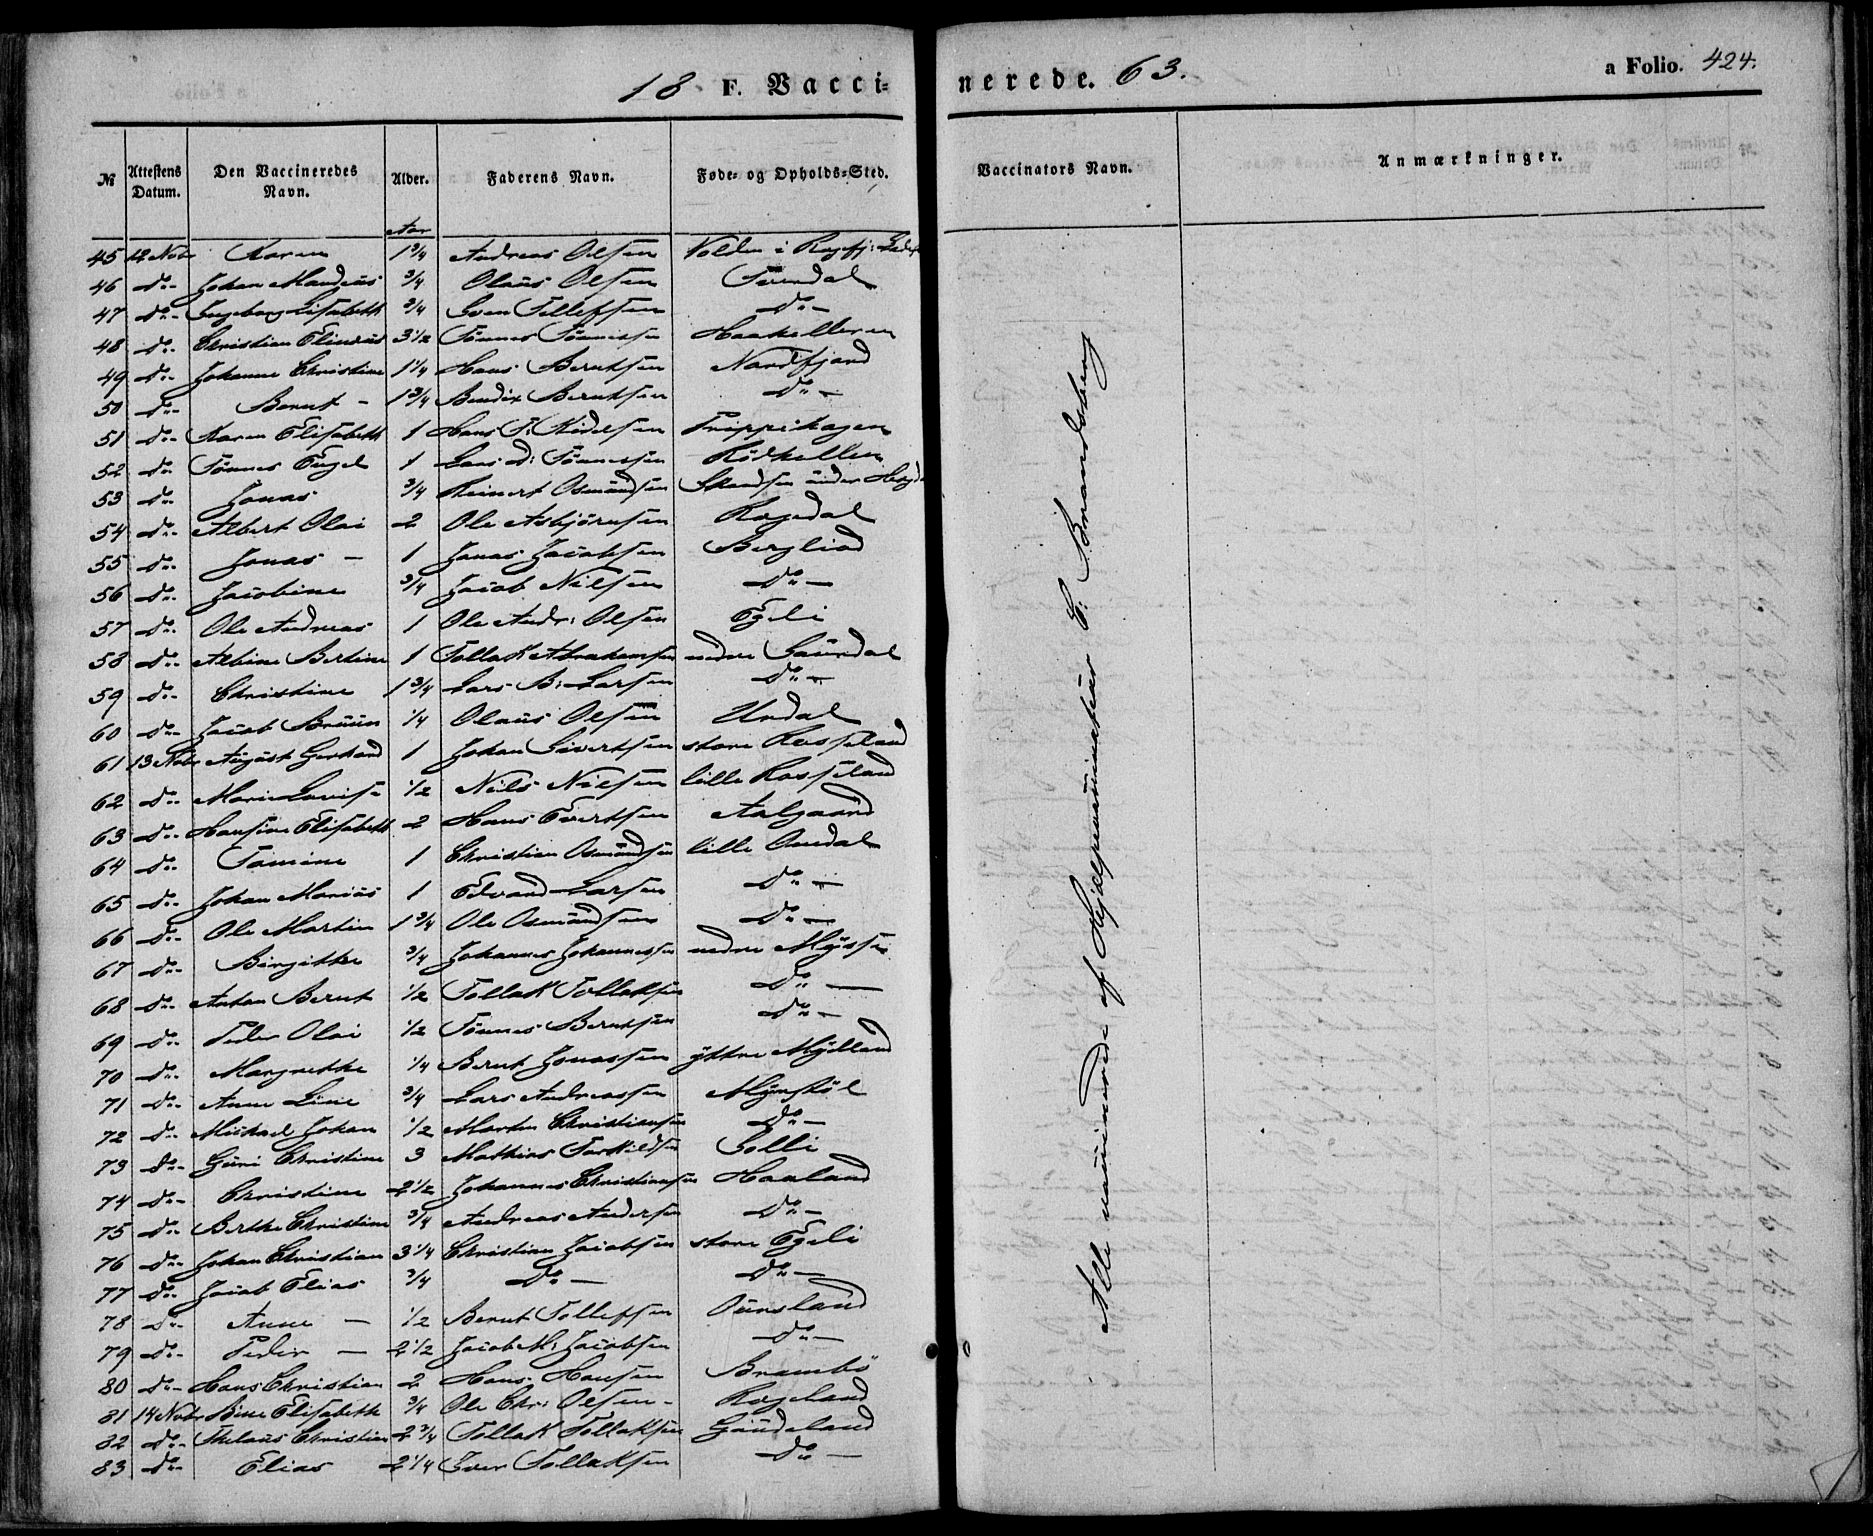 18 F. Vaccinerede. 63. a Folio. 424.
№ Attestens Datum. Den Vaccineredes Navn. Alder. Faderens Navn. Føde- og Opholds-Sted. Vaccinators Navn. Anmærkninger.
Aar
45 12 Nobr Karen 1 3/4 Andreas Olsen Volden i
46 do- Johan Mandius 3/4 Olaüs Olsen
47 do- Ingeborg Lisabeth 3/4 Sven Tellefsen do-
48 do- Christian 3 1/2 Tönnes Tönnessen Haakelleren
49 do- Johanne Christine 1 1/4 Hans Berntsen Nordfjord
50 do- Bernt - 1 3/4 Bendix Berntsen do-
51 do- Karen Elisabeth 1 Hans
52 do Tönnes 1 Lars Tönnessen Rödhelleren
53 do- Jonas 3/4 Reinert Osmündsen ünder
54 do- Albert Olai 2 Ole Asbjörnsen Rogedal
55 do- Jonas - 1 Jonas Jacobsen Bergliod
56 do- Jacobine 3/4 Jacob Nilsen do-
57 do- Ole Andreas 1 Ole Andr: Olsen Egeli
58 do- Albine Bertine 1 Tollak Abrahamsen nedre
59 do- Christine 1 3/4 Lars B: Larsen do-
60 do- Jacob Brüün 1/4 Olaüs Olsen Urdal
61 13 Nobr Aügüst Gerhard 1 Johan Sivertsen store Rosseland
62 do- Marie Lovise 1/2 Nils Nilsen lille Rosseland
63 do- Hansine Elisabeth 2 Hans Evertsen Aalgaard
64 do- Tomine 1 Christian Osmündsen lille Omdal
65 do- Johan Mariüs 1 Edvard Larsen do-
66 do- Ole Martin 1 3/4 Ole Osmündsen do-
67 do- Birgithe 3/4 Johannes Johannessen nedre
68 do- Anton Bernt 1/2 Tollak Tollaksen do-
69 do- Peder Olai 1/2 Tönnes Berntsen do-
70 do- Margrethe 1/4 Bernt Jonassen yttre Mylland
71 do- Anne Line 3/4 Lars Andreassen
72 do- Michael Johan 1/2 Martin Christiansen do-
73 do- Güri Christine 3 Mathias Torkildsen Solli
74 do- Christine 2 1/2 Johannes Christiansen Haaland
75 do- Berthe Christine 3/4 Andreas Andersen do-
76 do- Johan Christian 3 1/4 Christian Jacobsen store Egeli
77 do- Jacob Elias 3/4 do- do-
78 do- Anne - 1/2 Bernt Tollefsen Oürsland
79 do- Peder - 2 1/2 Jacob M: Jacobsen do-
80 do- Hans Christian 2 Hans Hansen Brambö
81 14 Nobr Sine Elisabeth 3/4 Ole Chr: Olsen- Rogeland
82 do- Thelaüs Christian 2 3/4 Tollak Tollaksen Gaüdeland
83 do- Elias 2 1/4 Iver Tollaksen do-
Alle vaccinerede af Hjælpevaccinateür C. Brandsberg